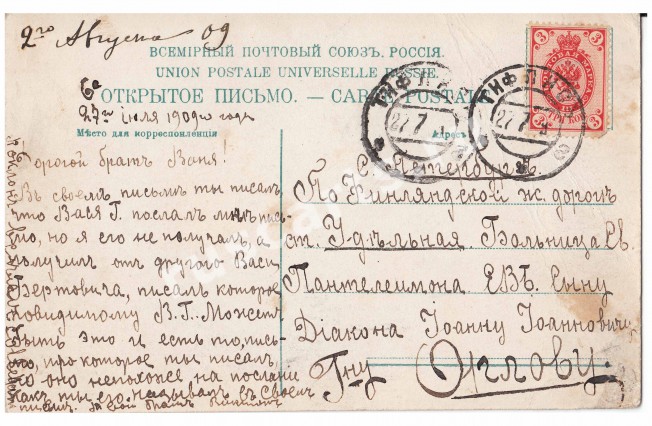 2го Августа 09
ВСЕМІРНЫЙ ПОЧТОВЫЙ СОЮЗЪ. РОССІЯ.
UNION POSTALE UNIVERSELLE RUSSIE.
ОТКРЫТОЕ ПИСЬМО. — CARTE POSTALE
27го іюля 1909го года
Мѣсто для корреспонденціи
Адресъ
ТИФЛИСЪ
27 7
ТИФЛИСЪ
27 7
3 3
3 3
Дорогой братъ Ваня!
Въ своемъ письмѣ ты писалъ
что Вася Г. послалъ мнѣ пись-
мо, но я его не получалъ, а
получилъ отъ другого Васи
Бертовича, писалъ которое
повидимому В. Г. Можетъ
быть это и есть то, пись-
мо, про которое ты писалъ,
но оно непохоже на посланіе
какъ ты его называлъ въ своемъ
письмѣ. братъ
С. Петербургъ.
По Финляндской ж. дорогѣ
ст. Удѣльная Больница Св.
Пантелеимона ЕВБ. Сыну
Діакона Іоанну Іоанновичу
Гну Орлову.